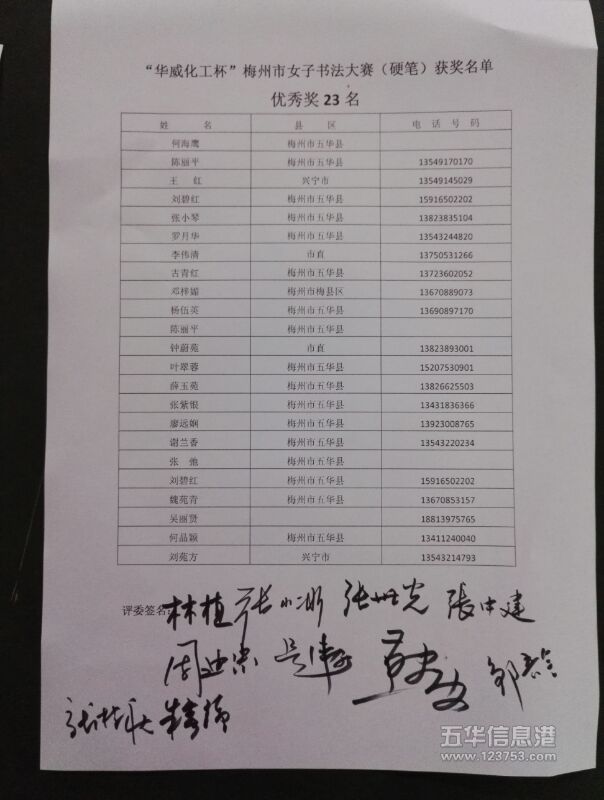 “华威化工杯”梅州市女子书法大赛（硬笔）获奖名单
优秀奖 23 名
姓 名 县 区 电 话 号 码
何海鹰 梅州市五华县
陈丽平 梅州市五华县 13549170170
王 红 兴宁市 13549145029
刘碧红 梅州市五华县 15916502202
张小琴 梅州市五华县 13823835104
罗月华 梅州市五华县 13543244820
李伟清 市直 13750531266
古青红 梅州市五华县 13723602052
邓梓媚 梅州市梅县区 13670889073
杨伍英 梅州市五华县 13690897170
陈丽平 梅州市五华县
钟蔚苑 市直 13823893001
叶翠蓉 梅州市五华县 15207530901
薛玉苑 梅州市五华县 13826625503
张紫银 梅州市五华县 13431836366
廖远娴 梅州市五华县 13923008765
谢兰香 梅州市五华县 13543220234
张 弛 梅州市五华县
刘碧红 梅州市五华县 15916502202
魏苑青 梅州市五华县 13670853157
吴丽贤 18813975765
何晶颖 梅州市五华县 13411240040
刘苑方 兴宁市 13543214793
评委签名：林植 張中建
五华信息港
www.123753.com